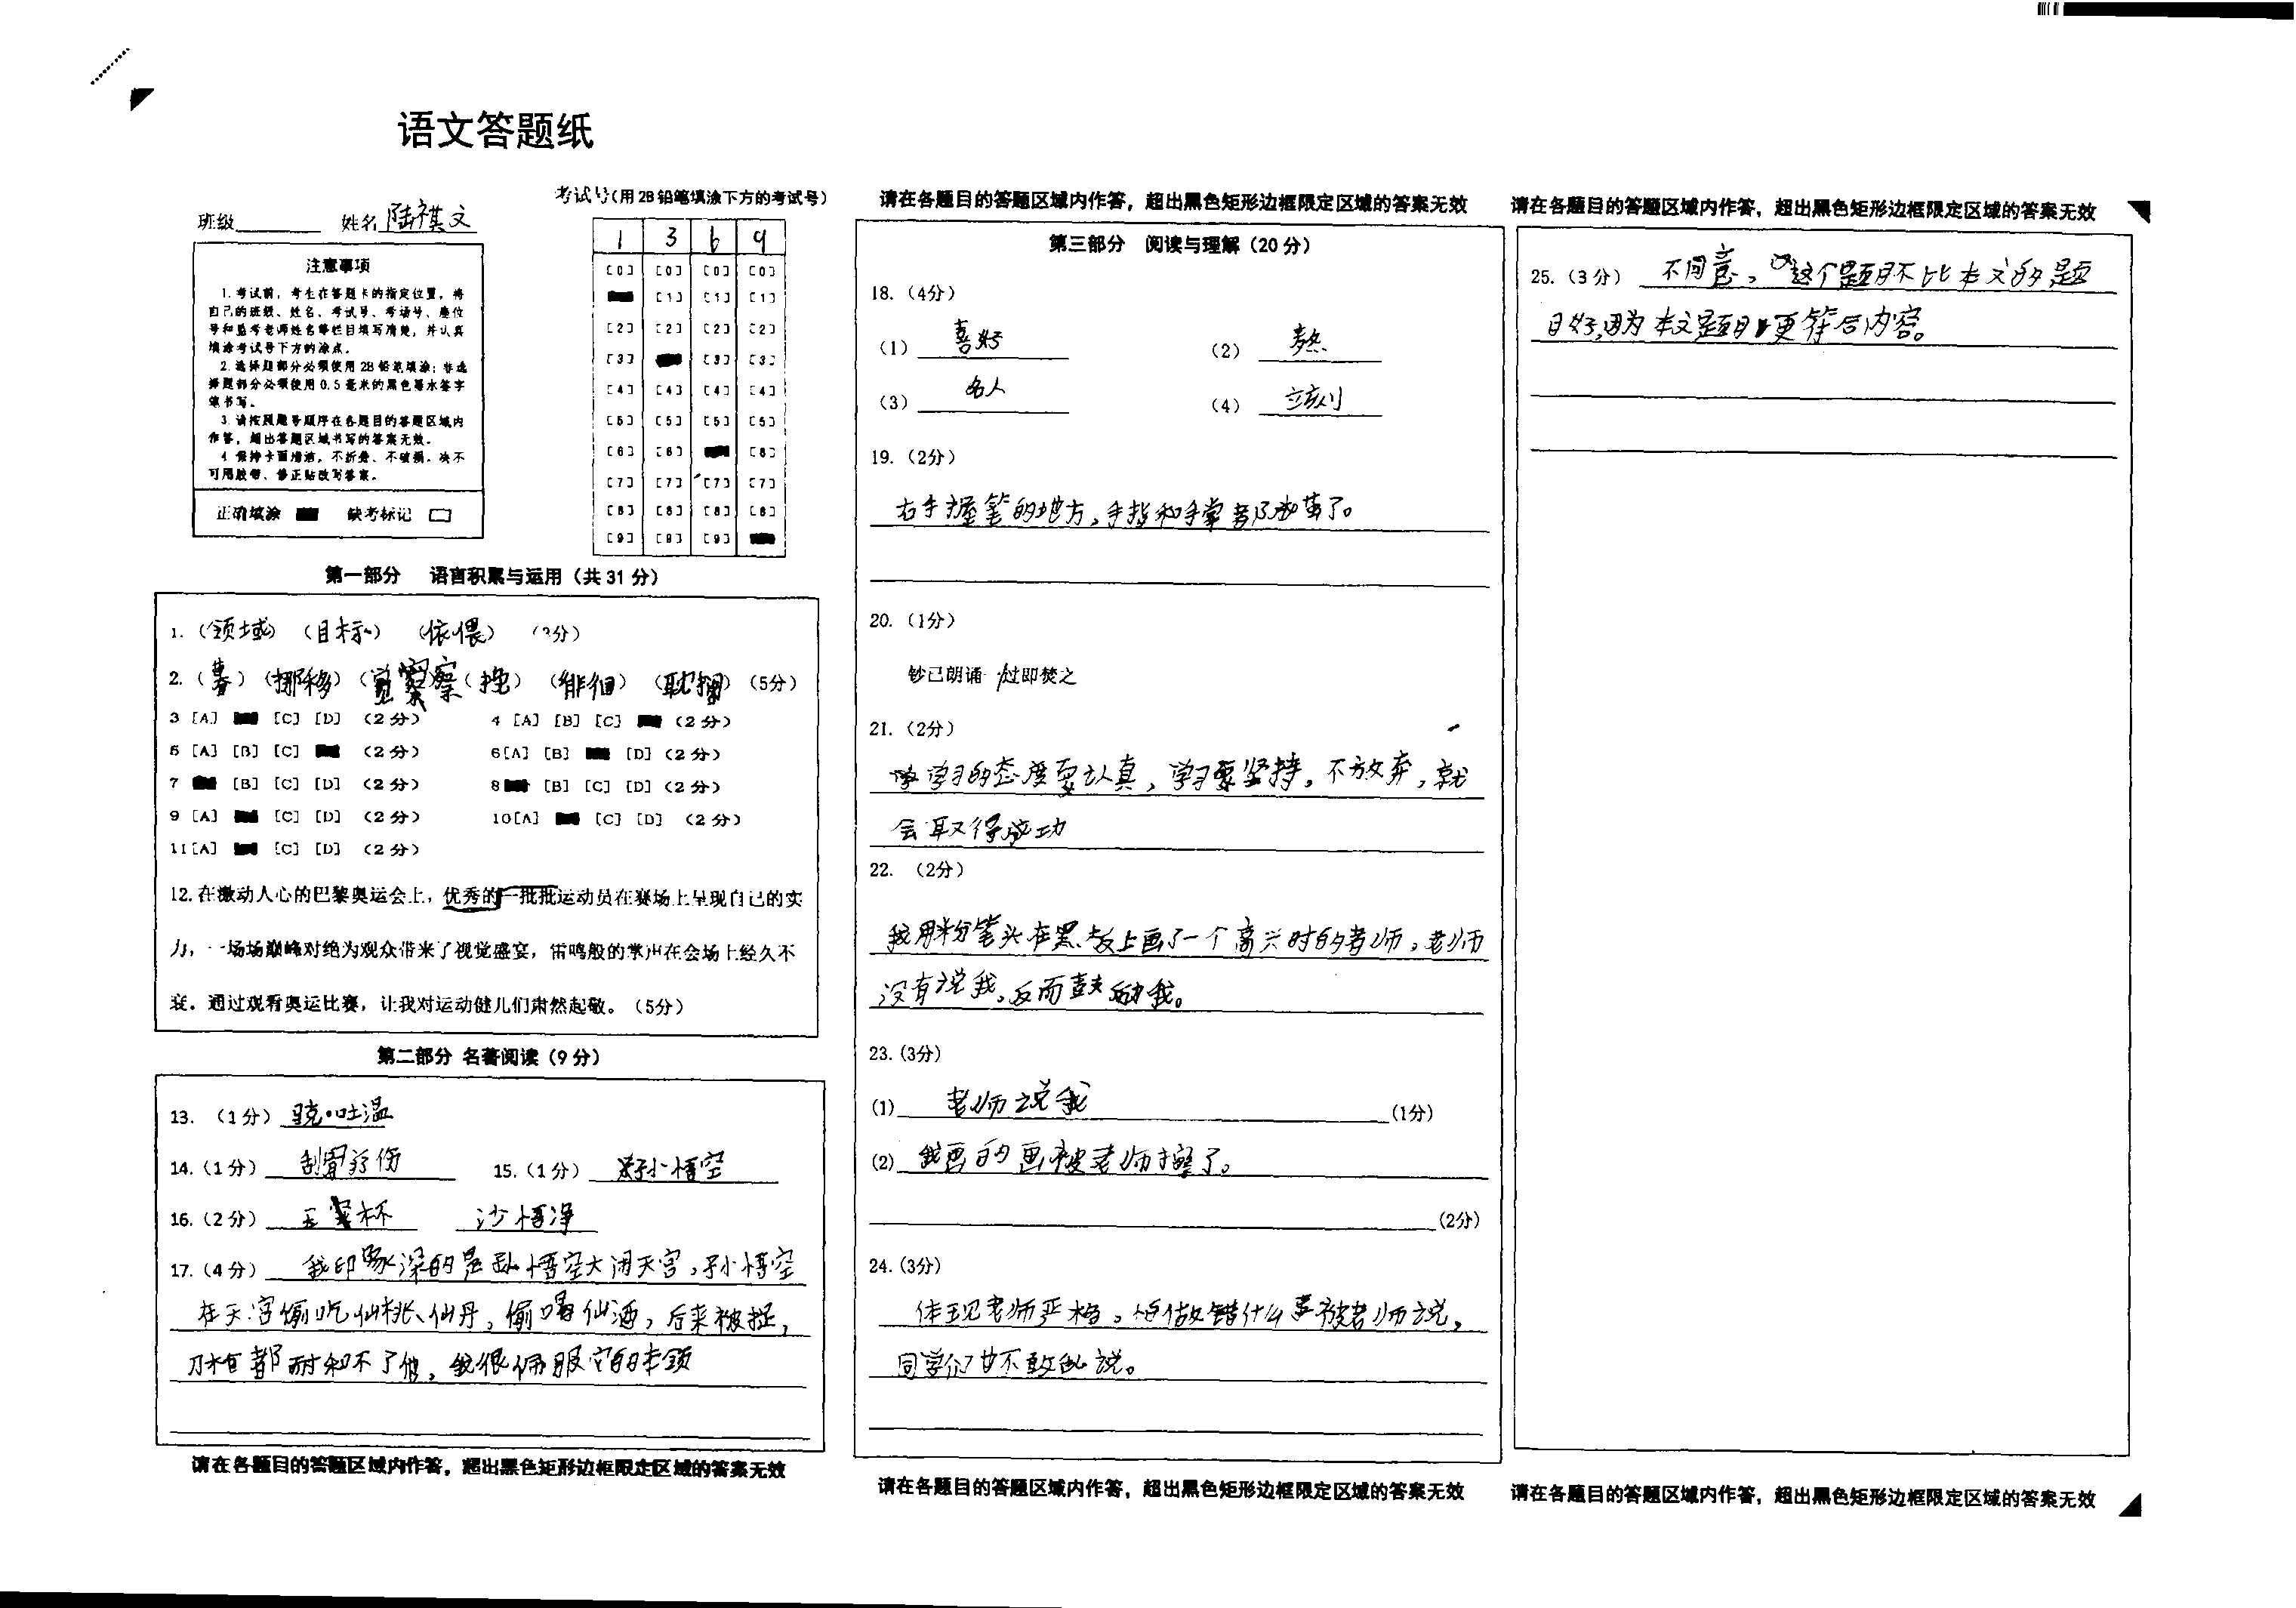 语文答题纸
班级 姓名 陆祺文
考试号(用 2B 铅笔填涂下方的考试号)
1 3 6 9
注意事项
1.考试前,考生在答题卡的指定位置,将
自己的班级、姓名、考试号、考场号、座位
号和监考老师姓名等栏目填写清楚,并认真
填涂考试号下方的涂点。
2.选择题部分必须使用 2B 铅笔填涂;非选
择题部分必须使用 0.5 毫米的黑色墨水签字
笔书写。
3.请按照题号顺序在各题目的答题区域内
作答,超出答题区域书写的答案无效。
4.保持卡面清洁,不折叠、不破损。决不
可用胶带、修正贴改写答案。
正确填涂 缺考标记
[0] [0] [0] [0]
[1] [1] [1]
[2] [2] [2] [2]
[3] [3] [3]
[4] [4] [4] [4]
[5] [5] [5] [5]
[6] [6] [6]
[7] [7] [7] [7]
[8] [8] [8] [8]
[9] [9] [9]
第一部分 语言积累与运用(共 31 分)
1.(领域)(目标)(依偎)(3分)
2.(暮)(挪移)(察)(拖)(徘徊)(耽搁)(5分)
3 [A] [C] [D] (2 分) 4 [A] [B] [C] (2 分)
5 [A] [B] [C] (2 分) 6[A] [B] [D] (2 分)
7 [B] [C] [D] (2 分) 8 [B] [C] [D] (2 分)
9 [A] [C] [D] (2 分) 10[A] [C] [D] (2 分)
11[A] [C] [D] (2 分)
12.在激动人心的巴黎奥运会上,优秀的一批批运动员在赛场上呈现自己的实
力,一场场巅峰对绝为观众带来了视觉盛宴,雷鸣般的掌声在会场上经久不
衰。通过观看奥运比赛,让我对运动健儿们肃然起敬。(5分)
第二部分 名著阅读(9 分)
13. (1 分) 骁·吐温
14.(1 分) 刮骨疗伤 15.(1 分) 孙小悟空
16.(2 分) 玉 杯 沙悟净
17.(4 分) 我印象深的是孙悟空大闹天宫,孙悟空
在天宫偷吃仙桃、仙丹,偷喝仙酒,后来被捉,
都耐和不了他,我很佩服它的本领
请在各题目的答题区域内作答,超出黑色矩形边框限定区域的答案无效
请在各题目的答题区域内作答,超出黑色矩形边框限定区域的答案无效
第三部分 阅读与理解(20 分)
18.(4分)
(1) 喜好 (2)
(3) 名人 (4) 立刻
19.(2分)
右手握笔的地方,手指和手掌都 茧了。
20.(1分)
钞已朗诵/过即焚之
21.(2分)
学习的态度要认真,学习要坚持。不放弃,就
会取得成功
22. (2分)
我用粉笔头在黑板上画了一个高兴时的老师。老师
没有说我,反而鼓励我。
23.(3分)
(1) 老师说我 (1分)
(2) 我画的画被老师擦了。
(2分)
24.(3分)
体现老师严格。 做错什么要被老师说,
同学们 不敢乱说。
请在各题目的答题区域内作答,超出黑色矩形边框限定区域的答案无效
请在各题目的答题区域内作答,超出黑色矩形边框限定区域的答案无效
25.(3 分) 不同意。 这个题目不比本文的题
目好,因为本文题目更符合内容。
请在各题目的答题区域内作答,超出黑色矩形边框限定区域的答案无效